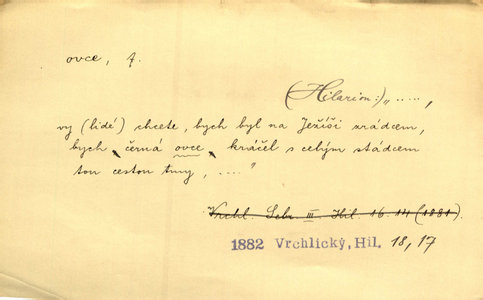 ovce, f.
(Hilarion:) „.....,
vy (lidé) chcete, bych byl na Ježíši zrádcem,
bych, černá ovce, kráčel s celým stádcem
tou cestou tmy, ...."
Vrchl. Sebr. III Hil. 16. 14 (1881).
1882 Vrchlický, Hil. 18, 17